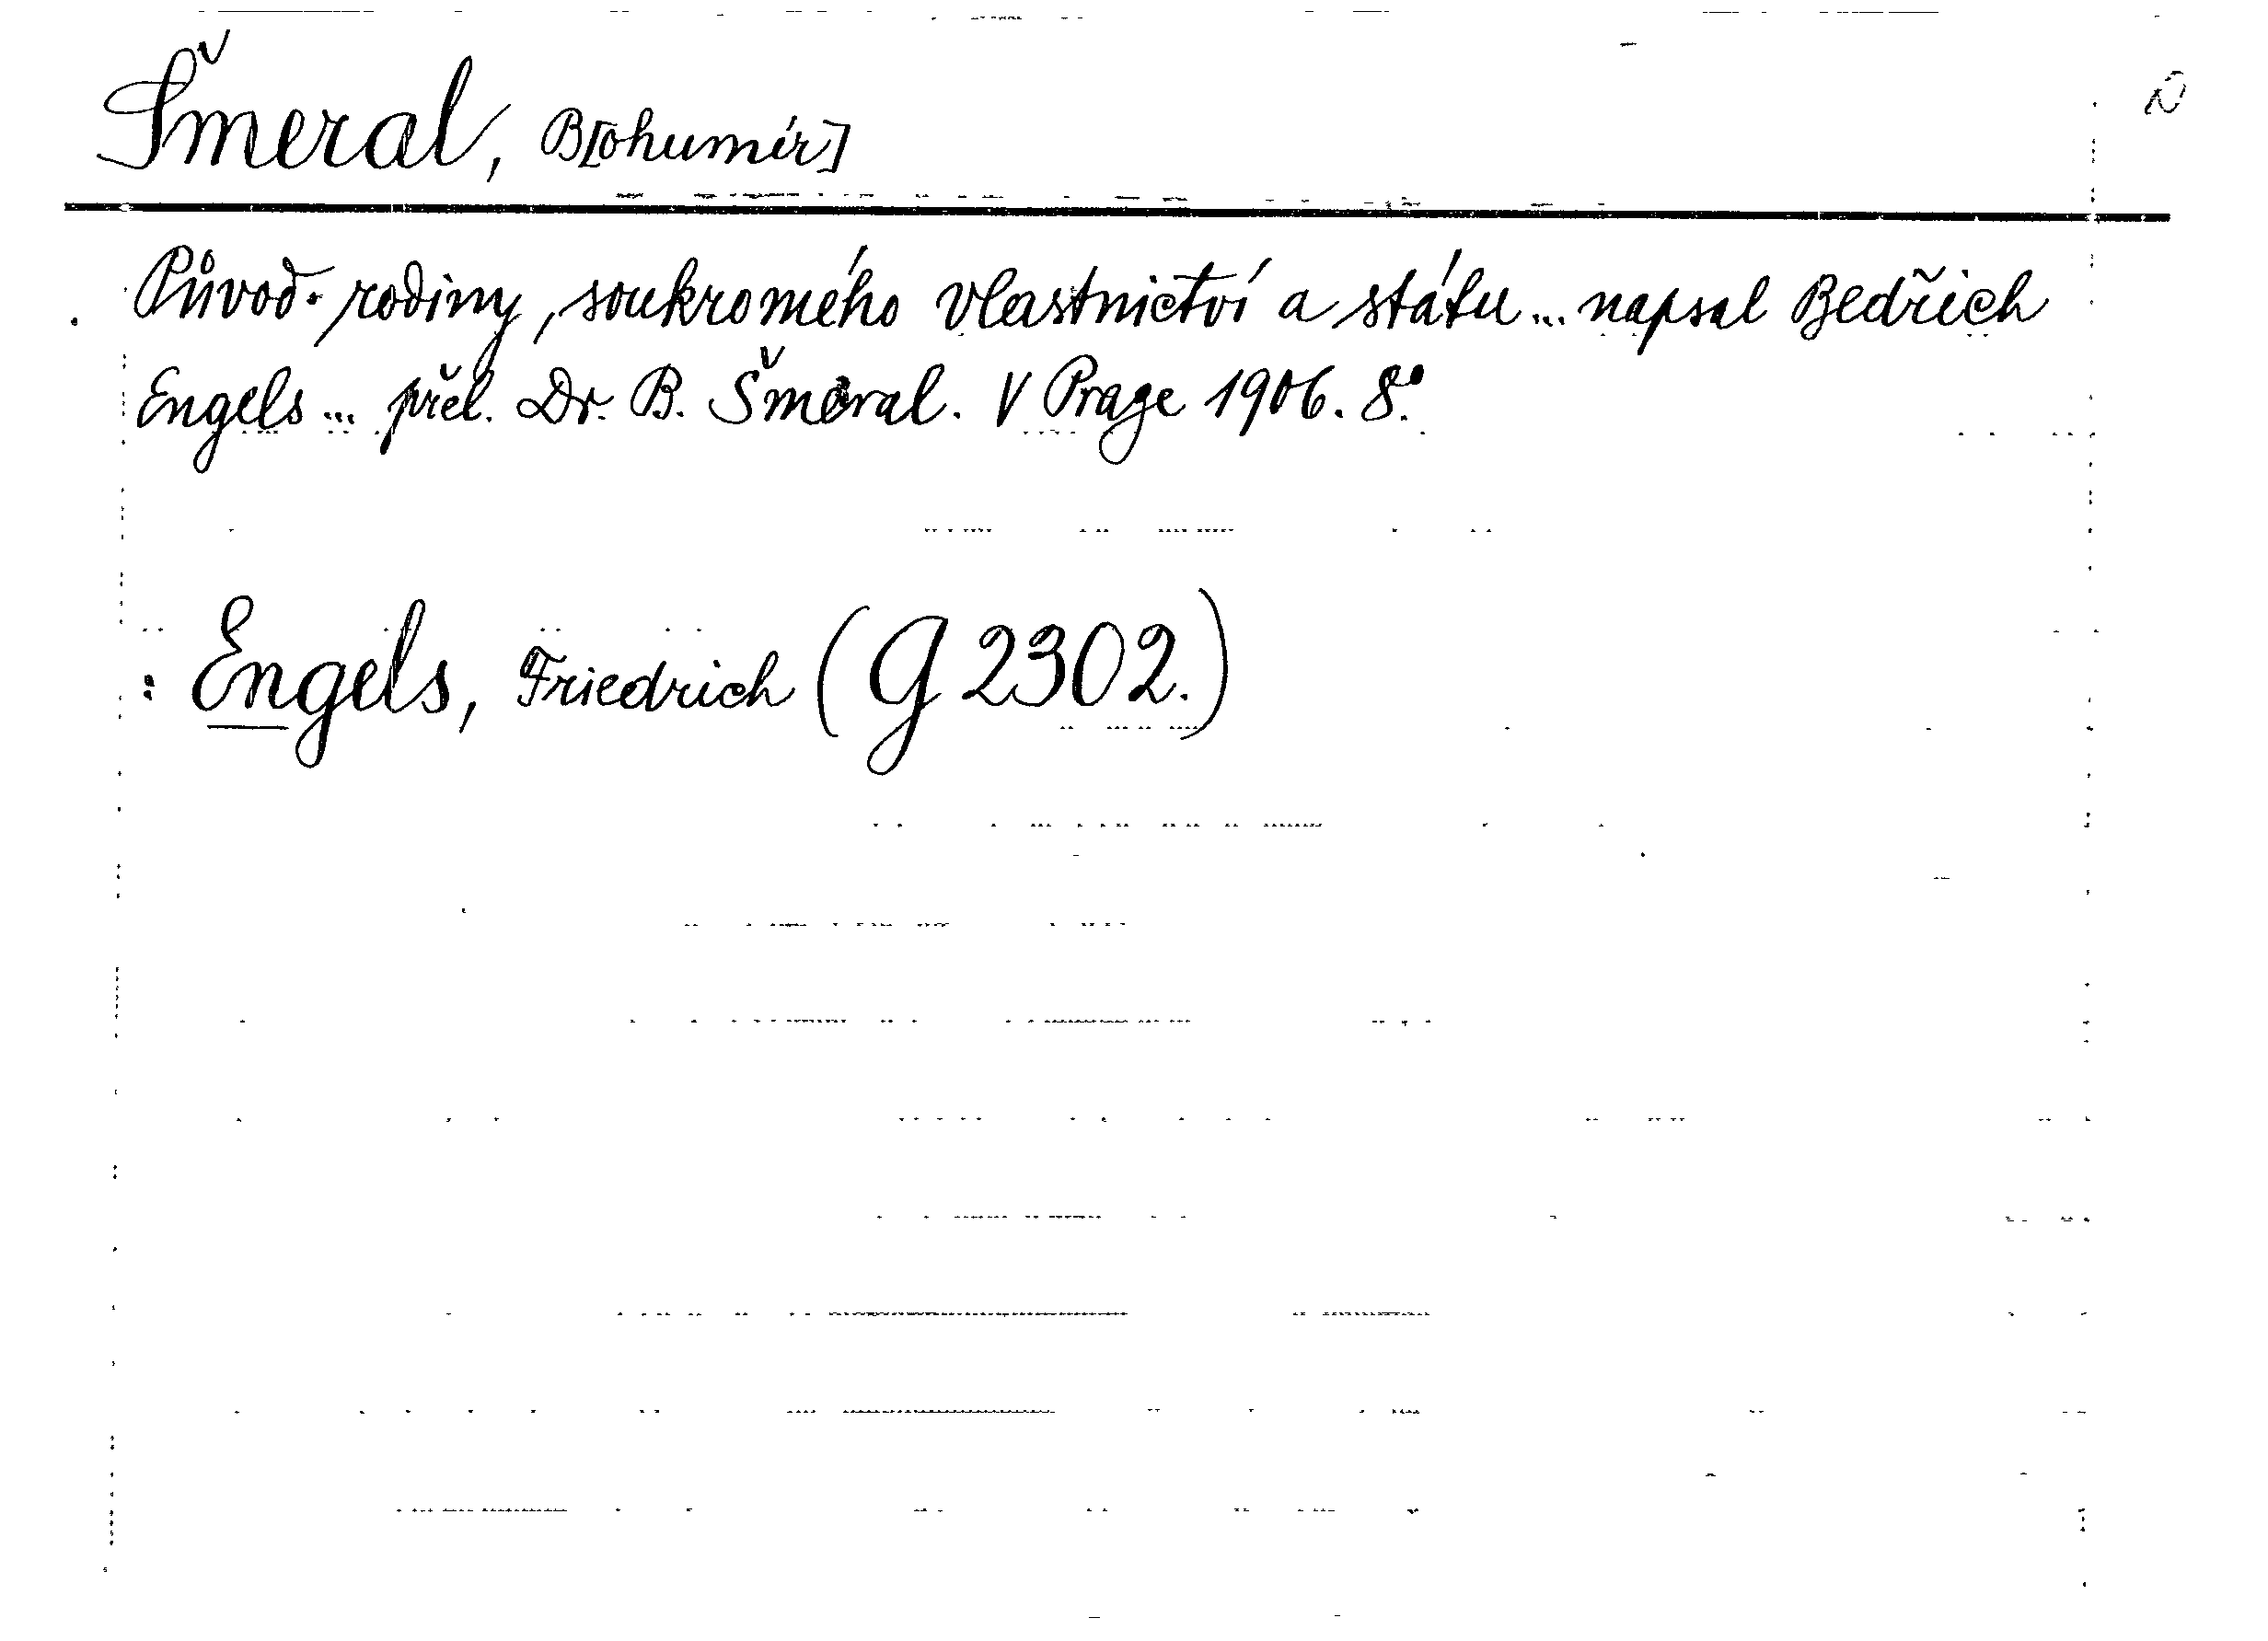 Šmeral, B[ohumír]
Původ rodiny, soukromého vlastnictví a státu... napsal Bedřich
Engels... přel. Dr. B. Šmeral. V Prage 1906. 8.°
: Engels, Friedrich (G 2302.)